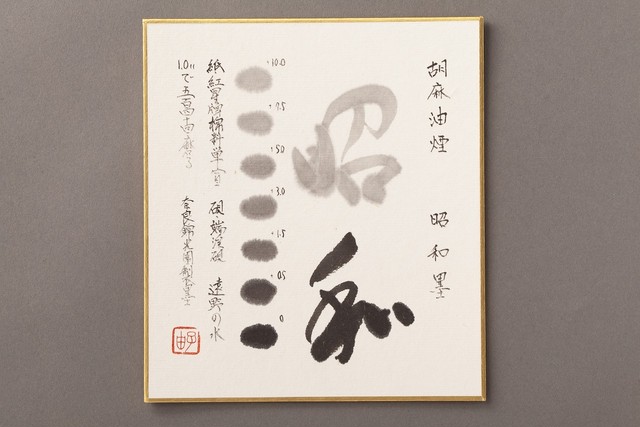 胡麻油煙　昭和墨
昭和
10.0
7.5
5.0
3.0
1.5
0.5
0
紙 紅星牌棉料単宣 硯 端渓硯 遠野の水
1.0㏄で五百四十回磨
奈良錦光園製墨